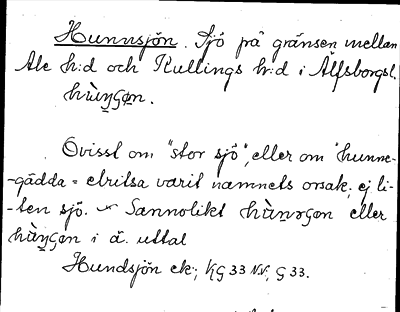 Hunnsjön. Sjö på gränsen mellan
Ale h:d och Kullings h:d i Älfsborgsl.
hùŋʂən.
Ovisst om "stor sjö", eller om "hunne-
-gädda = elritsa varit namnets orsak, ej li-
-ten sjö. Sannolikt eller
i ä. uttal
Hundsjön ek; KG 33 NV, G 33.